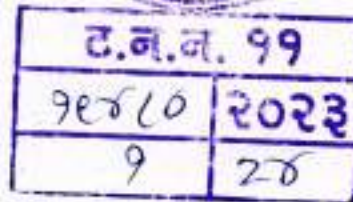 ट.न.न. ११
१९४८० २०२३
१ २४